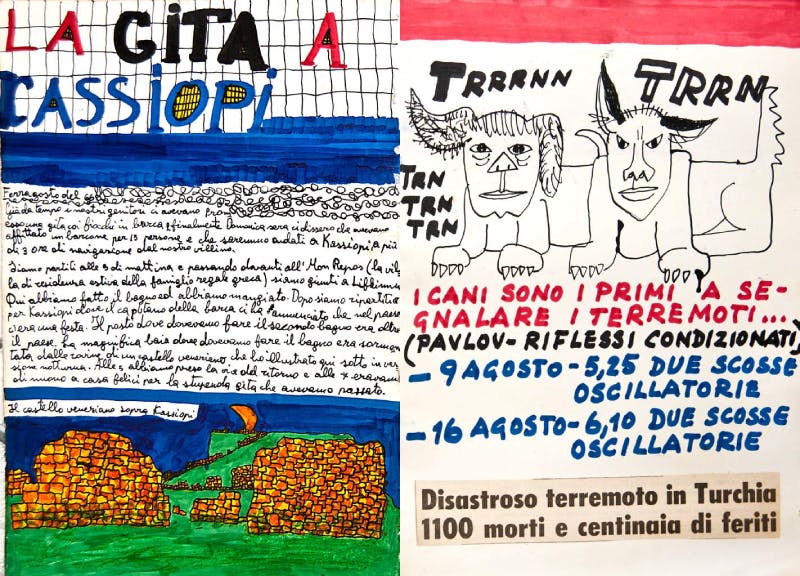 LA GITA A
CASSIOPI
Ferragosto del
Già da tempo i nostri genitori ci avevano
una gita coi fiocchi in barca e finalmente Domenica sera ci dissero che avevano
affittato un barcone per 15 persone e che saremmo andati a Kassiopi, a più
di 3 ore di navigazione dal nostro villino.
Siamo partiti alle 9 di mattina e passando davanti all'Mon Repos (la vil-
la di residenza estiva della famiglia reale greca) siamo giunti a
Qui abbiamo fatto il bagno ed abbiamo mangiato. Dopo siamo ripartiti
per Kassiopi dove il capitano della barca ci ha annunciato che nel paese
c'era una festa. Il posto dove dovevamo fare il secondo bagno era oltre
il paese. La magnifica baia dove dovevamo fare il bagno era sormon-
tata dalle rovine di un castello veneziano che ho illustrato qui sotto in ver-
sione notturna. Alle 5 abbiamo preso la via del ritorno e alle 7 eravamo
di nuovo a casa felici per la stupenda gita che avevamo passato.
Il castello veneziano sopra Kassiopi
TRRRNN TRRN
TRN
TRN
TRN
I CANI SONO I PRIMI A SE-
GNALARE I TERREMOTI...
(PAVLOV-RIFLESSI CONDIZIONATI)
- 9 AGOSTO - 5,25 DUE SCOSSE
OSCILLATORIE
- 16 AGOSTO - 6,10 DUE SCOSSE
OSCILLATORIE
Disastroso terremoto in Turchia
1100 morti e centinaia di feriti